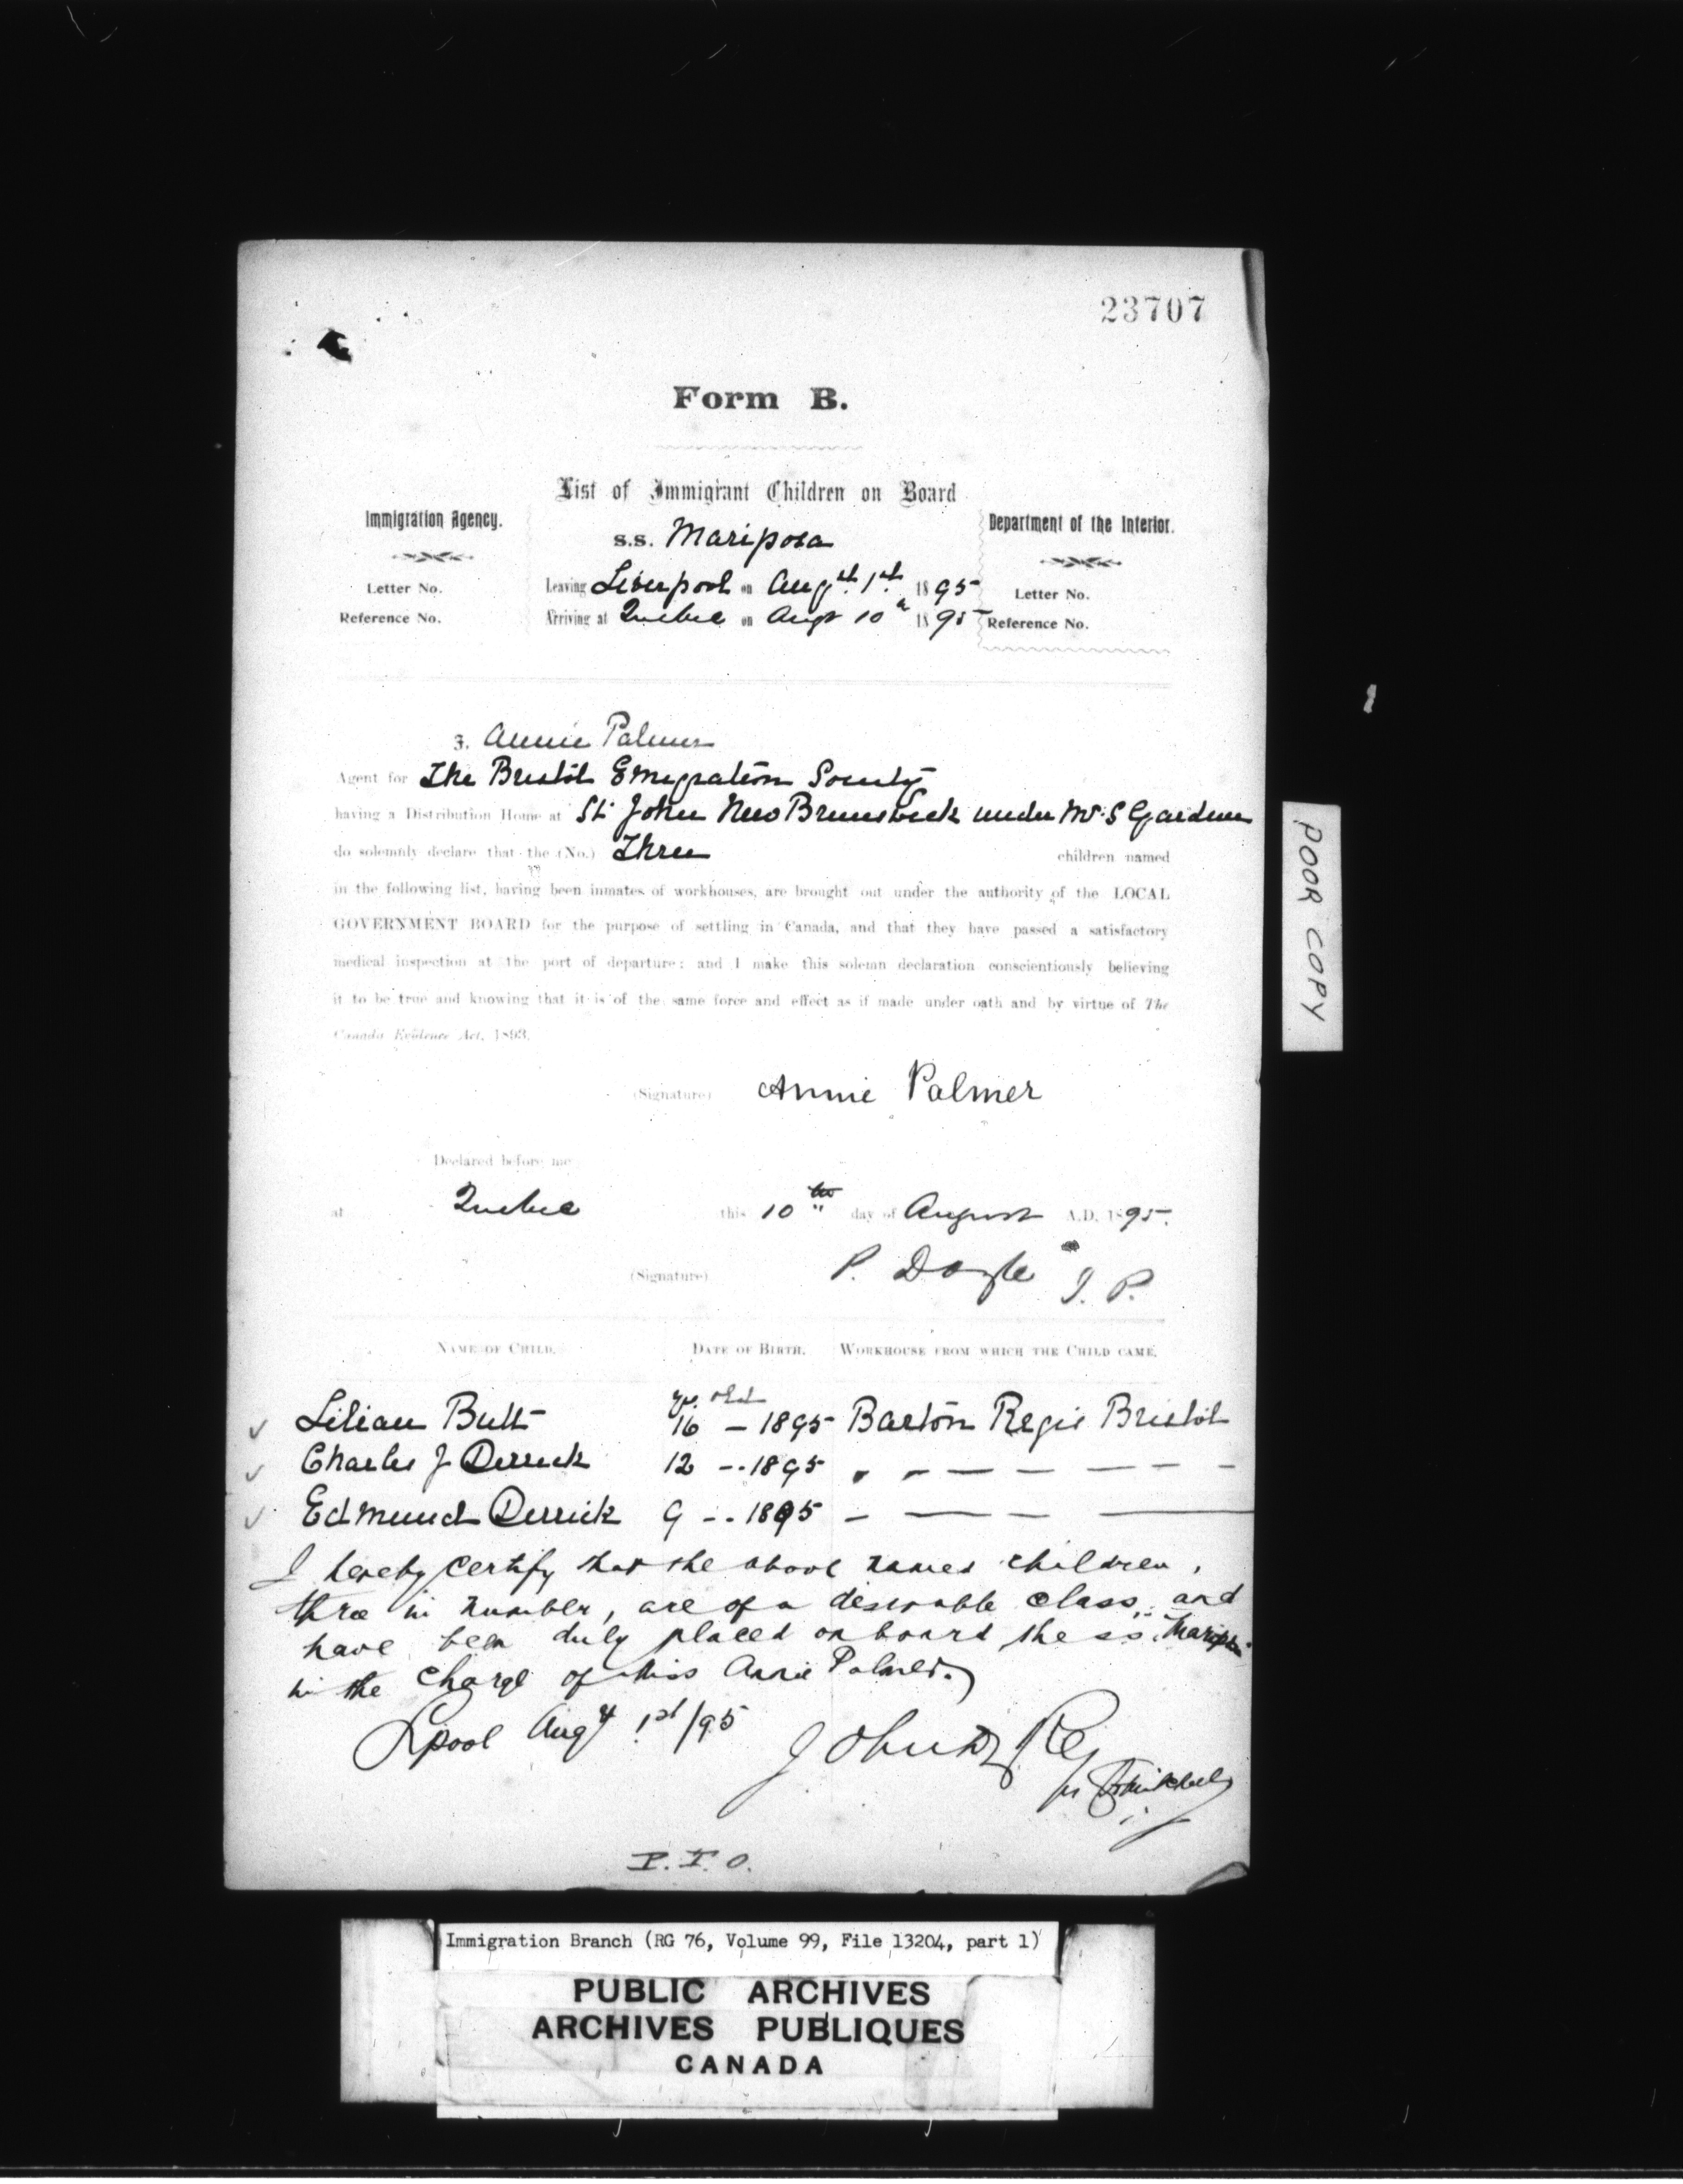 23707
Form B.
List of Immigrant Children on Board
Immigration Agency.
Department of the Interior.
S.S. Mariposa
Letter No.
Leaving Liverpool on Augst. 1st. 1895
Letter No.
Reference No.
Arriving at Quebec on Augt 10th 1895
Reference No.
I, Annie Palmer
Agent for The Bristol Emigration Society
having a Distribution Home at St John New Brunswick under Mr S Gardner
do solemnly declare that the (No.) Three children named
in the following list, having been inmates of workhouses, are brought out under the authority of the LOCAL
GOVERNMENT BOARD for the purpose of settling in Canada, and that they have passed a satisfactory
medical inspection at the port of departure; and I make this solemn declaration conscientiously believing
it to be true and knowing that it is of the same force and effect as if made under oath and by virtue of The
Canada Evidence Act, 1893.
(Signature) Annie Palmer
Declared before me
at Quebec this 10th day of August A.D. 1895.
(Signature) P. Doyle J. P.
NAME OF CHILD. DATE OF BIRTH. WORKHOUSE FROM WHICH THE CHILD CAME.
yrs. old
Lilian Butt 16 - 1895 Barton Regis Bristol
Charles J Derrick 12 - 1895 " " — — — — —
Edmund Derrick 9 - 1895 — — — —
I hereby certify that the above named children,
three in number, are of a desirable class, and
have been duly placed on board the ss. Mariposa
in the charge of Miss Annie Palmer.
Lpool Augt 1st/95
John Dyke
pr Mitchell
P.T.O.
POOR COPY
Immigration Branch (RG 76, Volume 99, File 13204, part 1)
PUBLIC ARCHIVES
ARCHIVES PUBLIQUES
CANADA